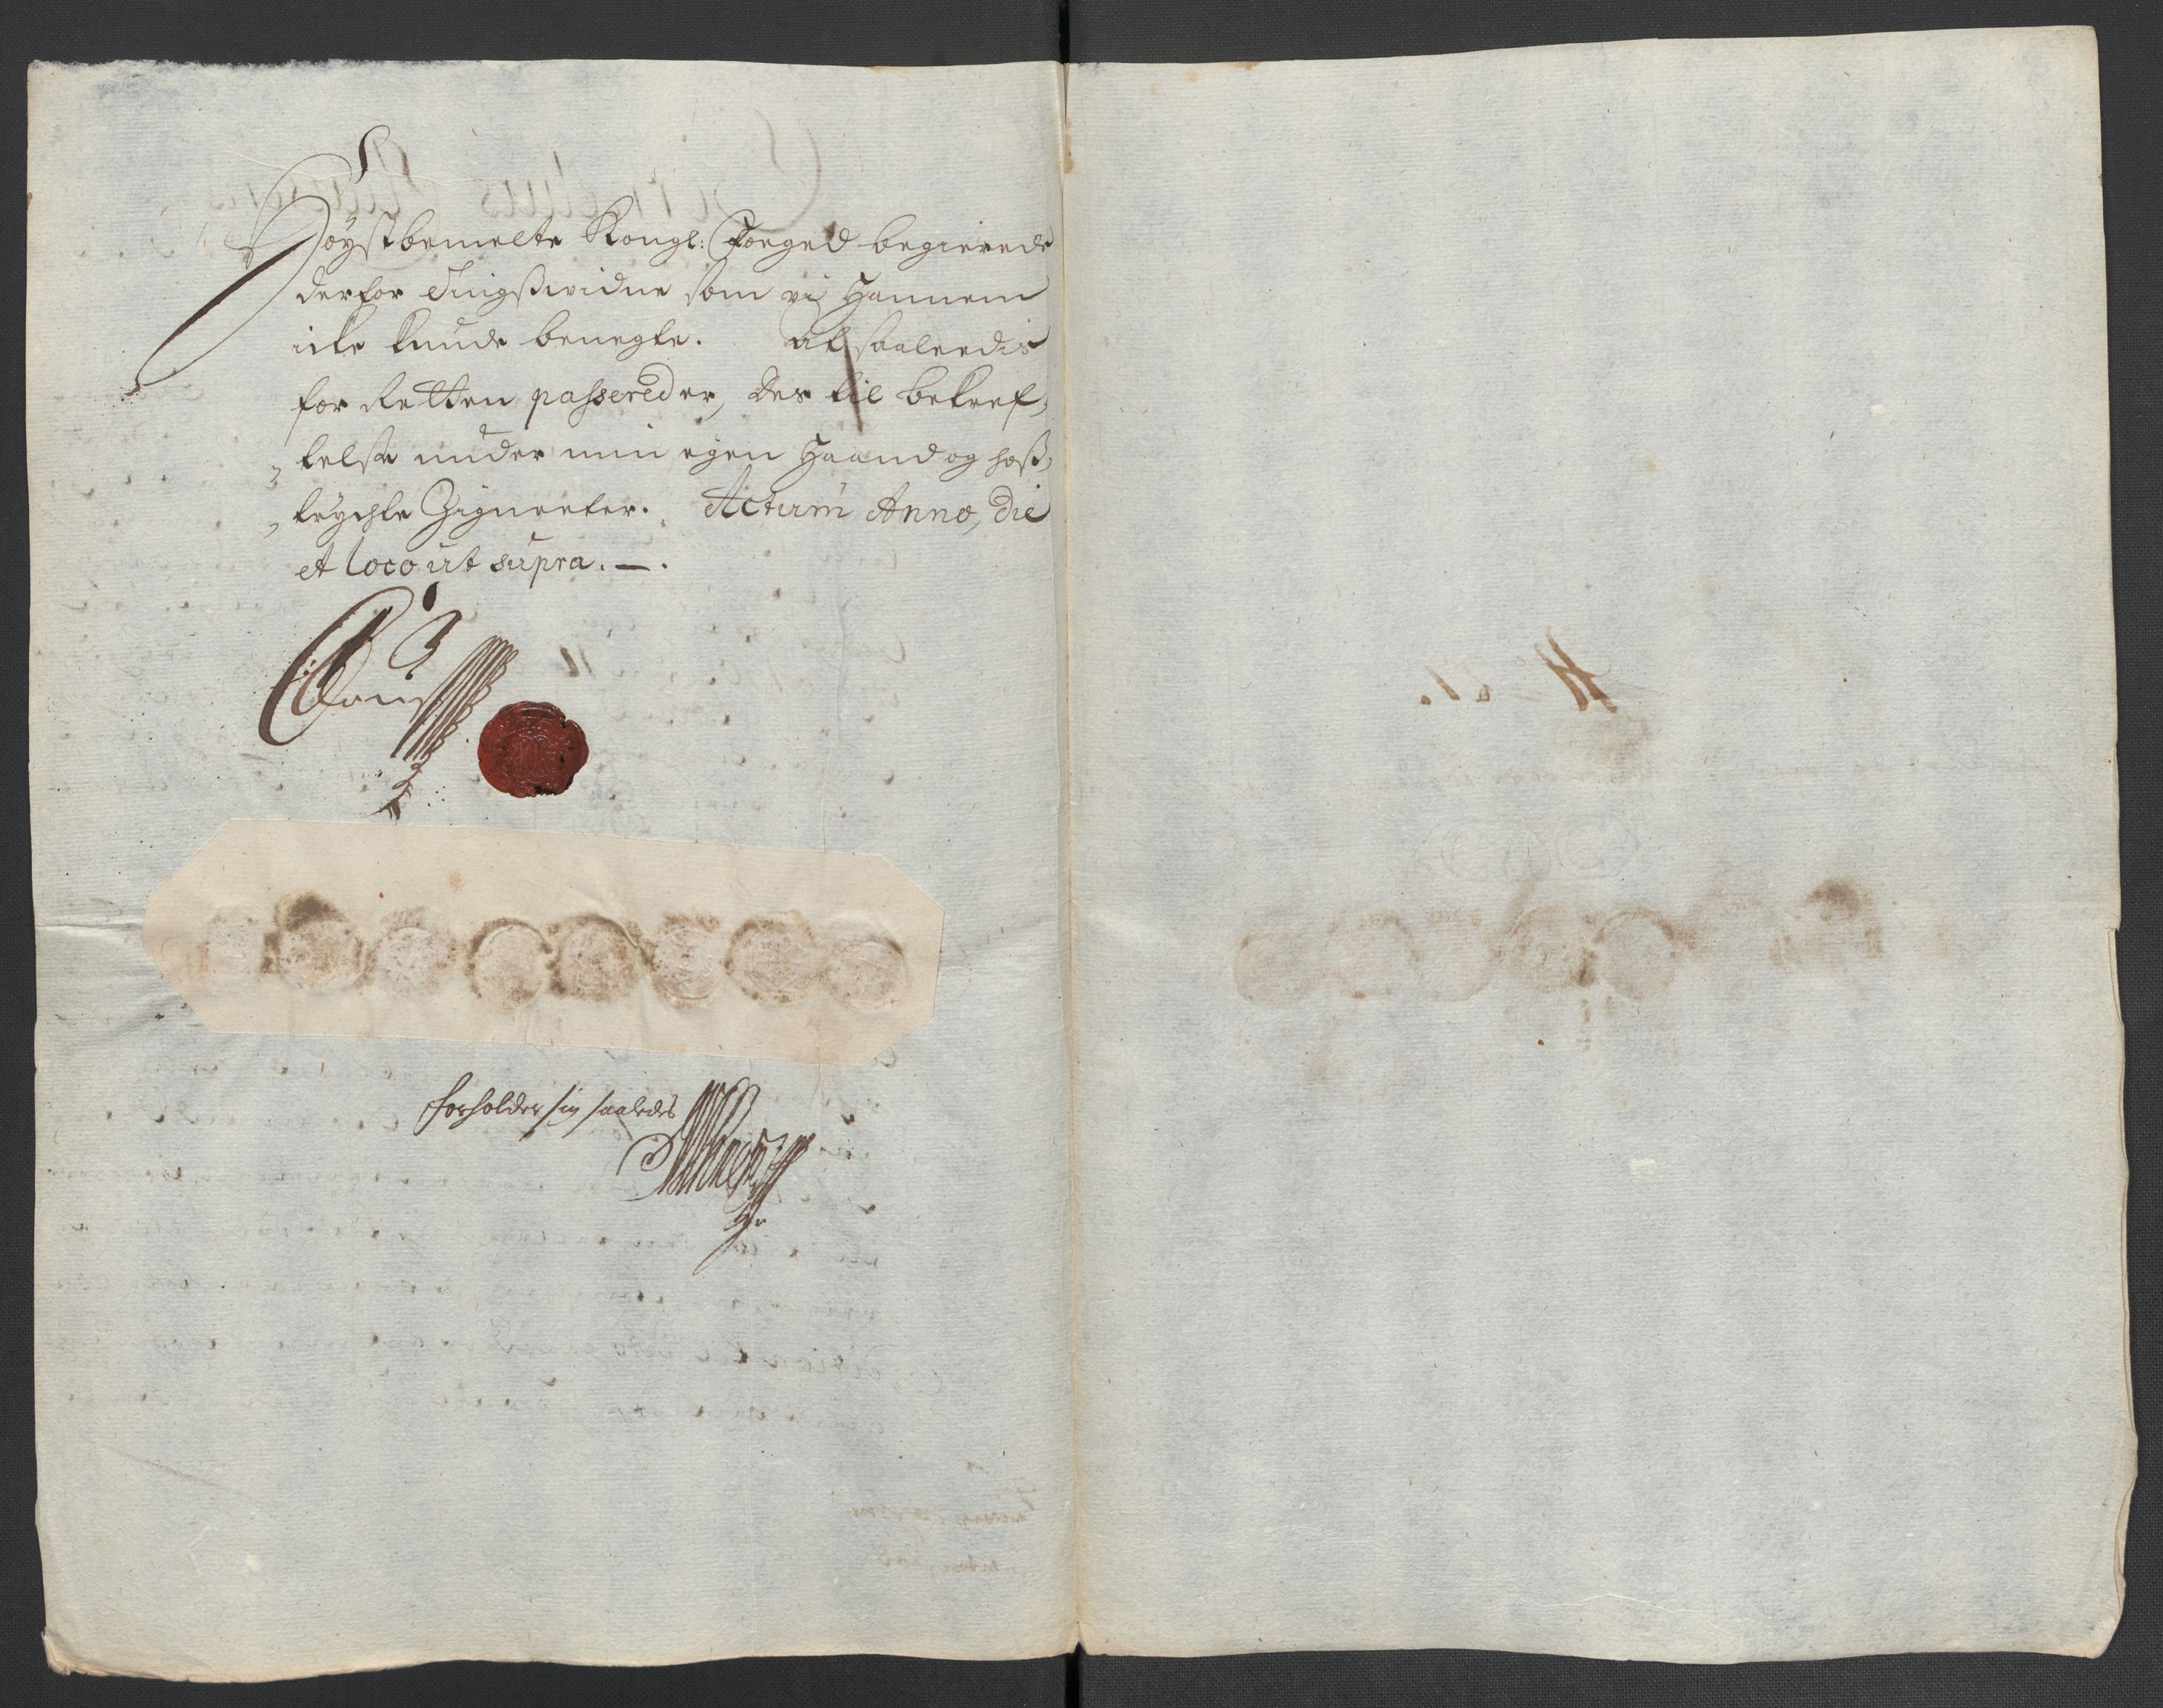 Höystbemelte Kongl: Foged begierede
derfor Tingßwidne som vi Hannem
icke kunde benegte. At saaleedis
for Retten passered er, Des til bekref,
„telse under min egen Haand og hoß,
„trychte Zigneeter. Actum Anno, Die
et loco ut supra. —.
forholder sig saaledes